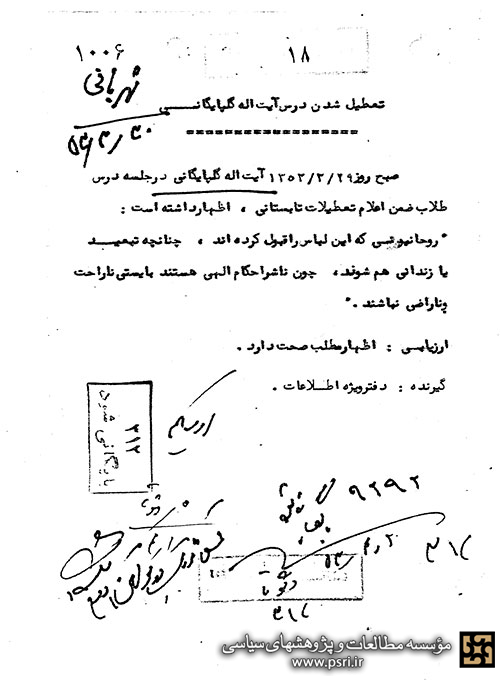 ۱۸
۱۰۰۶
شهربانی
۵۳/۳/۳۰
تعطیل شدن درس آیت اله گلپایگانی
صبح روز ۱۳۵۳/۳/۲۹ آیت اله گلپایگانی در جلسه درس
طلاب ضمن اعلام تعطیلات تابستانی ، اظهار داشته است :
"روحانیونی که این لباس را قبول کرده اند ، چنانچه تبعید
یا زندانی هم شوند، چون ناشر احکام الهی هستند بایستی ناراحت
و ناراضی نباشند ."
ارزیابی : اظهار مطلب صحت دارد .
گیرنده : دفتر ویژه اطلاعات .
۳۱۲
بایگانی شود
۹۲۹۲
۳۱۲
۳۱۲
مؤسسه مطالعات و پژوهشهای سیاسی
www.psri.ir